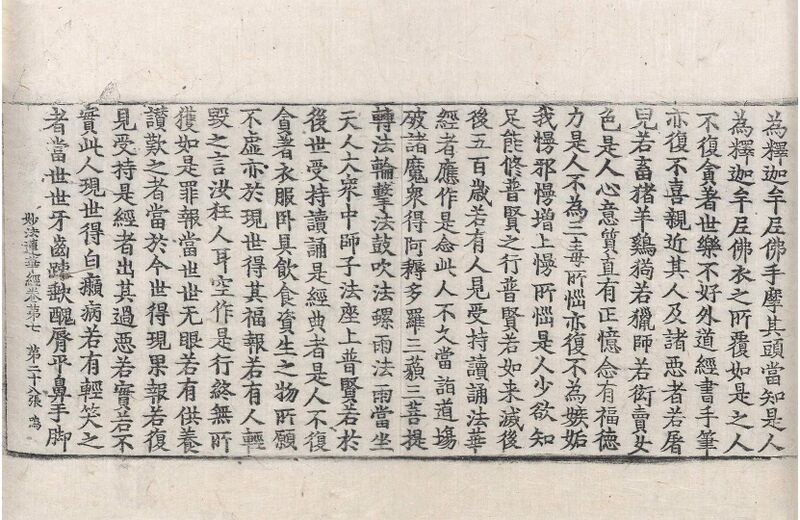 為釋迦牟尼佛手摩其頭當知是人
為釋迦牟尼佛衣之所覆如是之人
不復貪著世樂不好外道經書手筆
亦復不喜親近其人及諸惡者若屠
兒若畜猪羊鷄狗若獵師若衒賣女
色是人心意質直有正憶念有福德
力是人不為三毒所惱亦復不為嫉妬
我慢邪慢增上慢所惱是人少欲知
足能修普賢之行普賢若如来滅後
後五百歲若有人見受持讀誦法華
經者應作是念此人不久當詣道場
破諸魔衆得阿耨多羅三藐三菩提
轉法輪擊法鼓吹法螺雨法雨當坐
天人大衆中師子法座上普賢若於
後世受持讀誦是經典者是人不復
貪著衣服卧具飲食資生之物所願
不虛亦於現世得其福報若有人輕
毀之言汝狂人耳空作是行終無所
獲如是罪報當世世无眼若有供養
讃歎之者當於今世得現果報若復
見受持是經者出其過惡若實若不
實此人現世得白癩病若有輕笑之
者當世世牙齒踈缺醜脣平鼻手脚
妙法蓮華經卷第七 第二十八張